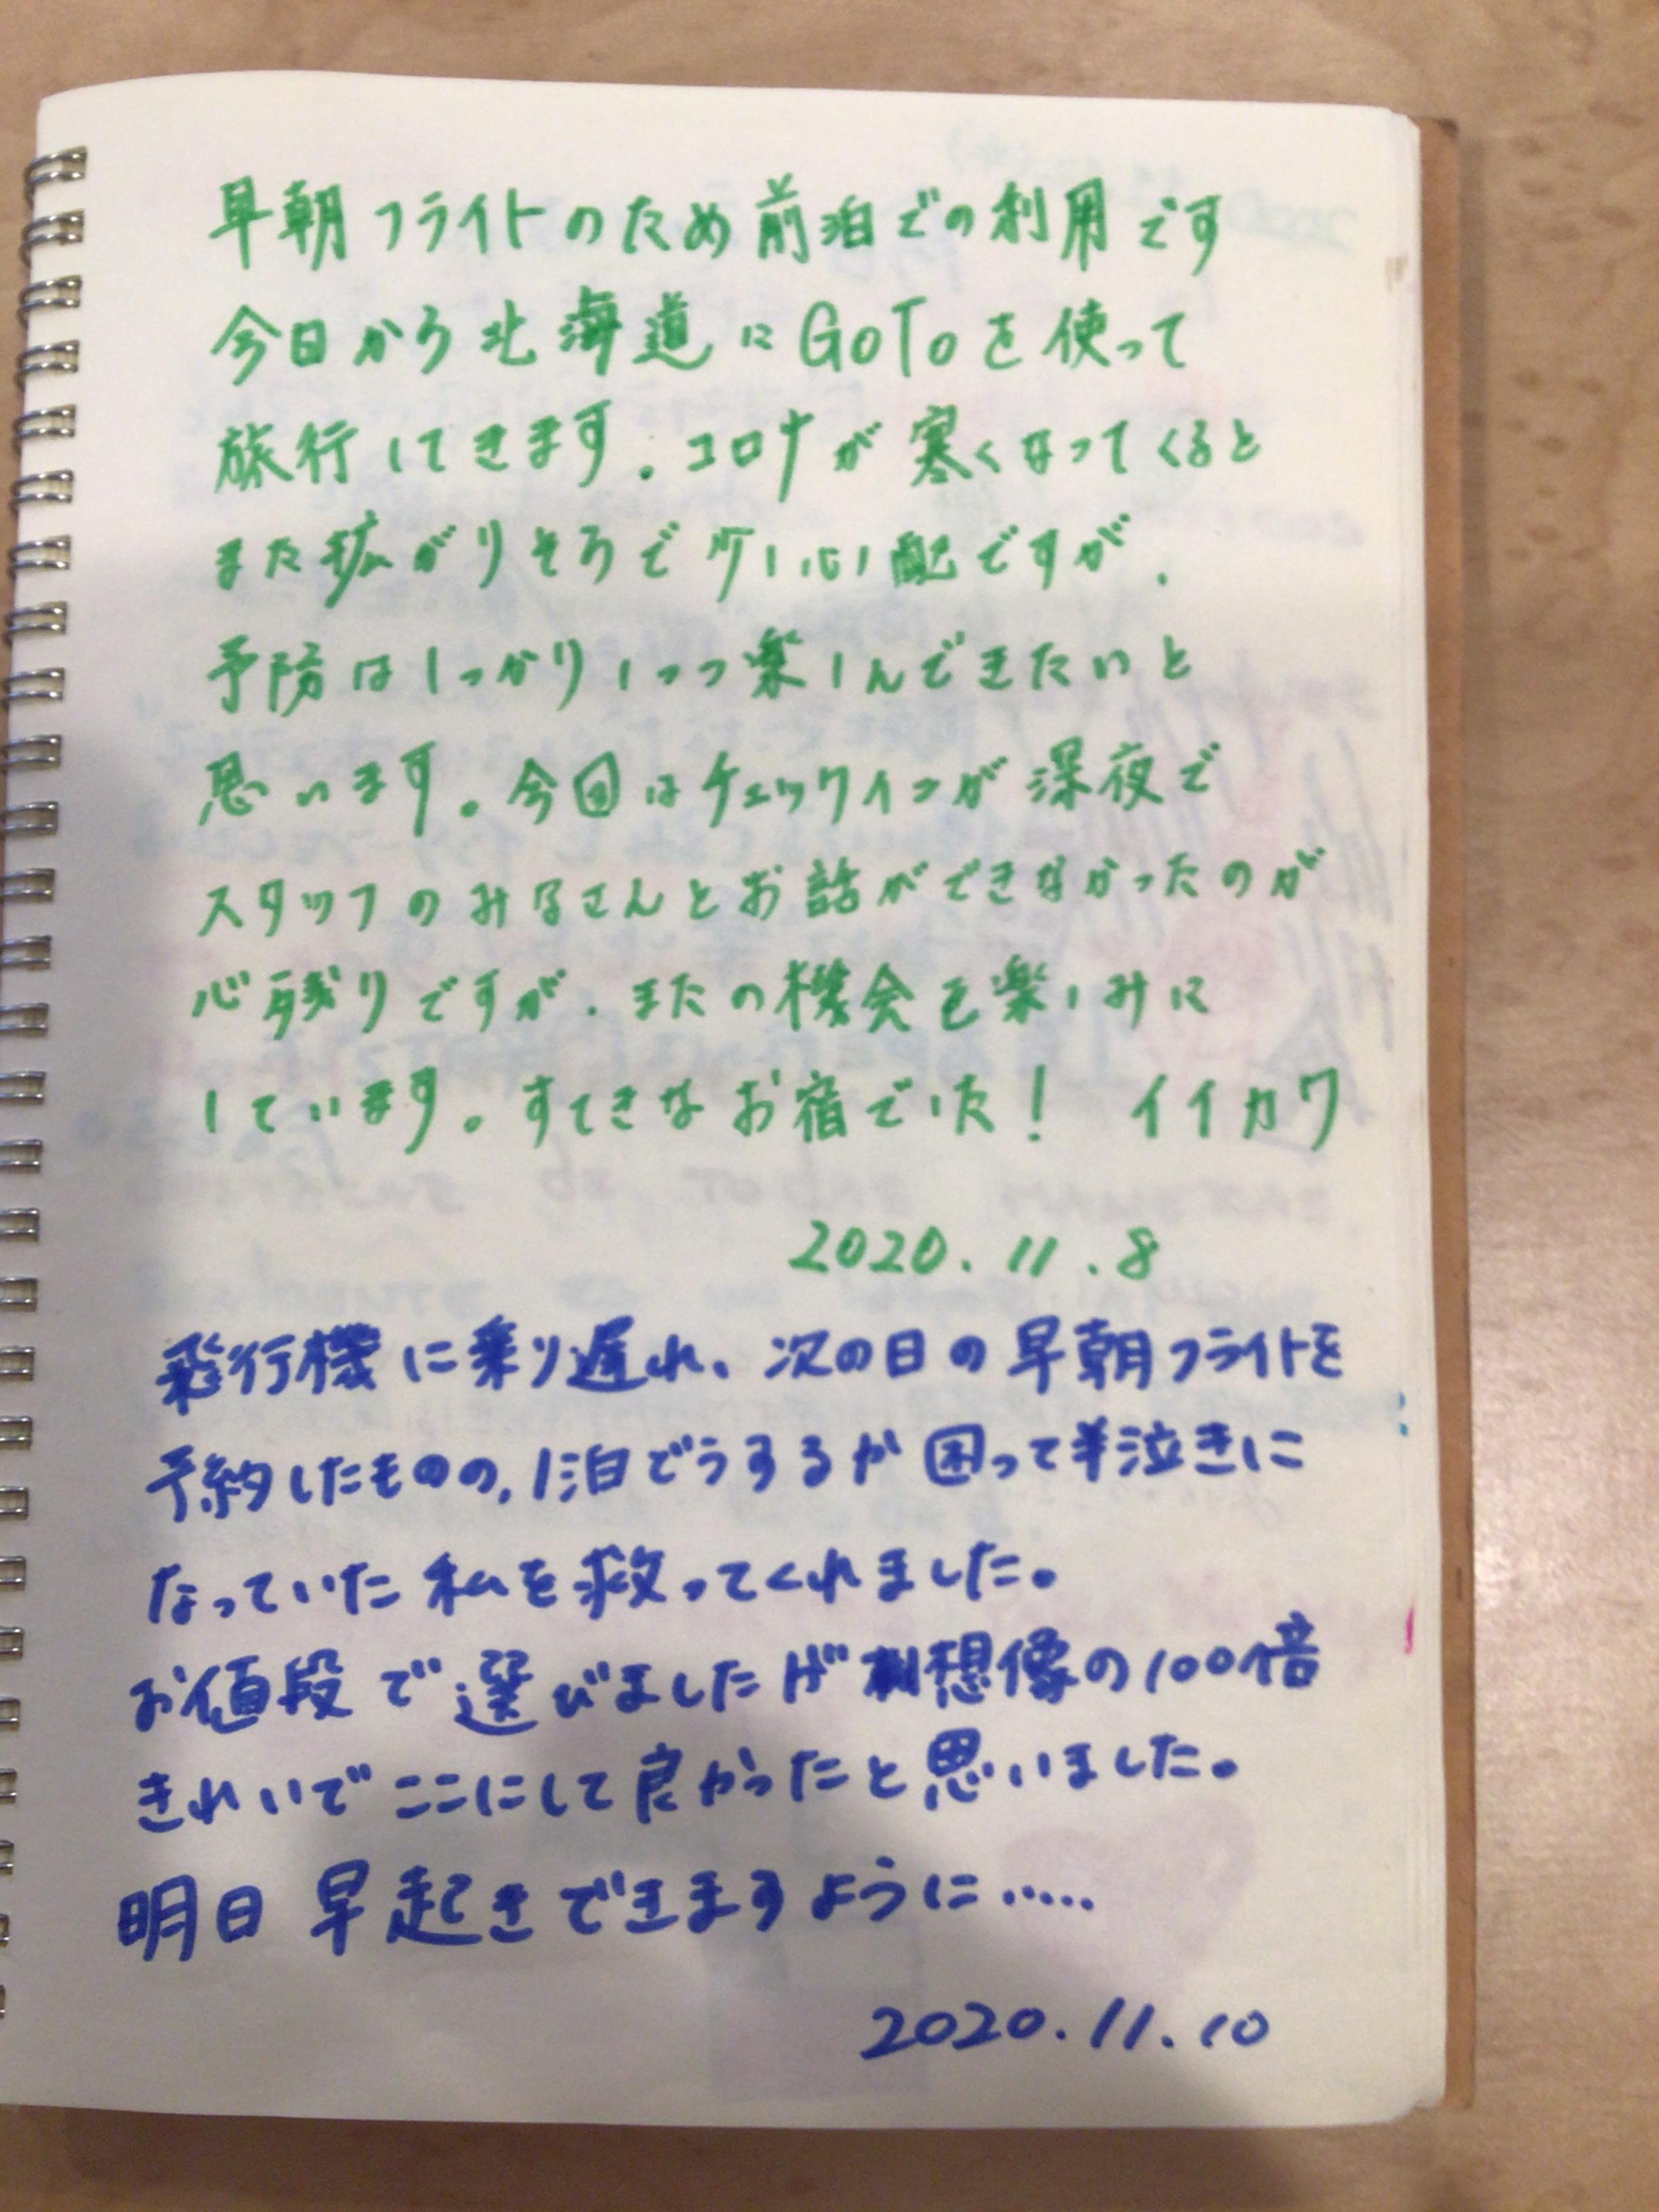 早朝フライトのため前泊での利用です
今日から北海道にGoToを使って
旅行してきます。コロナが寒くなってくると
また拡がりそうで少し心配ですが、
予防はしっかりしつつ楽しんできたいと
思います。今回はチェックインが深夜で
スタッフのみなさんとお話ができなかったのが
心残りですが、またの機会を楽しみに
しています。すてきなお宿でした! イイカワ
2020.11.8
飛行機に乗り遅れ、次の日の早朝フライトを
予約したものの、1泊どうするか困って半泣きに
なっていた私を救ってくれました。
お値段で選びましたが想像の100倍
きれいでここにして良かったと思いました。
明日早起きできますように……
2020.11.10